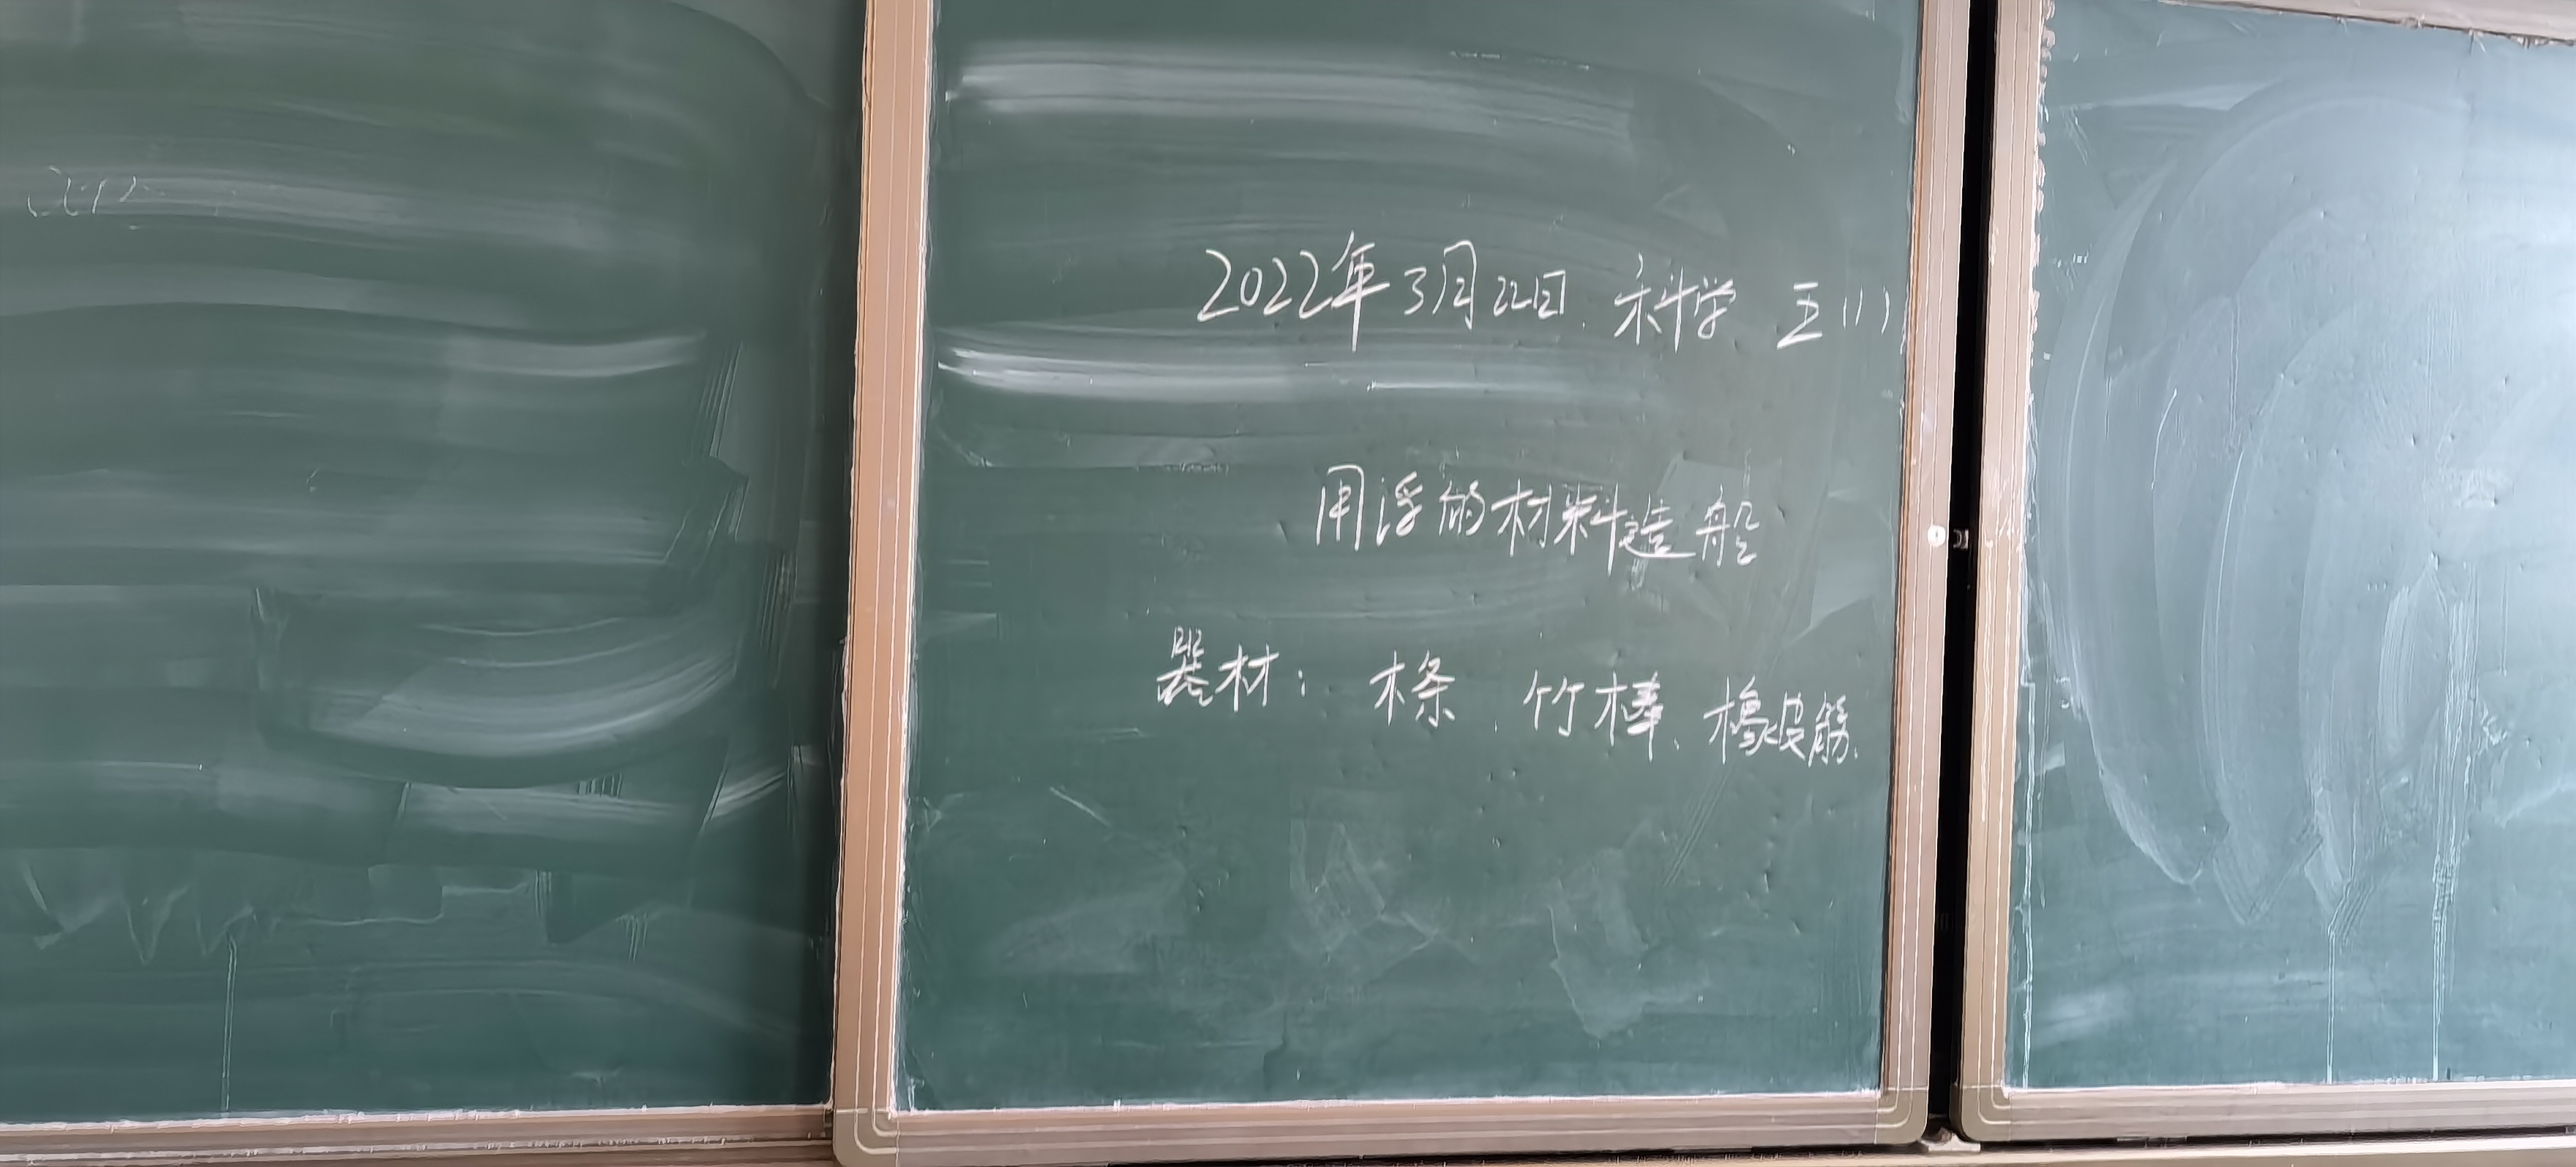 2022年3月22日 科学 五(1)
用浮的材料造船
器材: 木条、竹棒、橡皮筋.